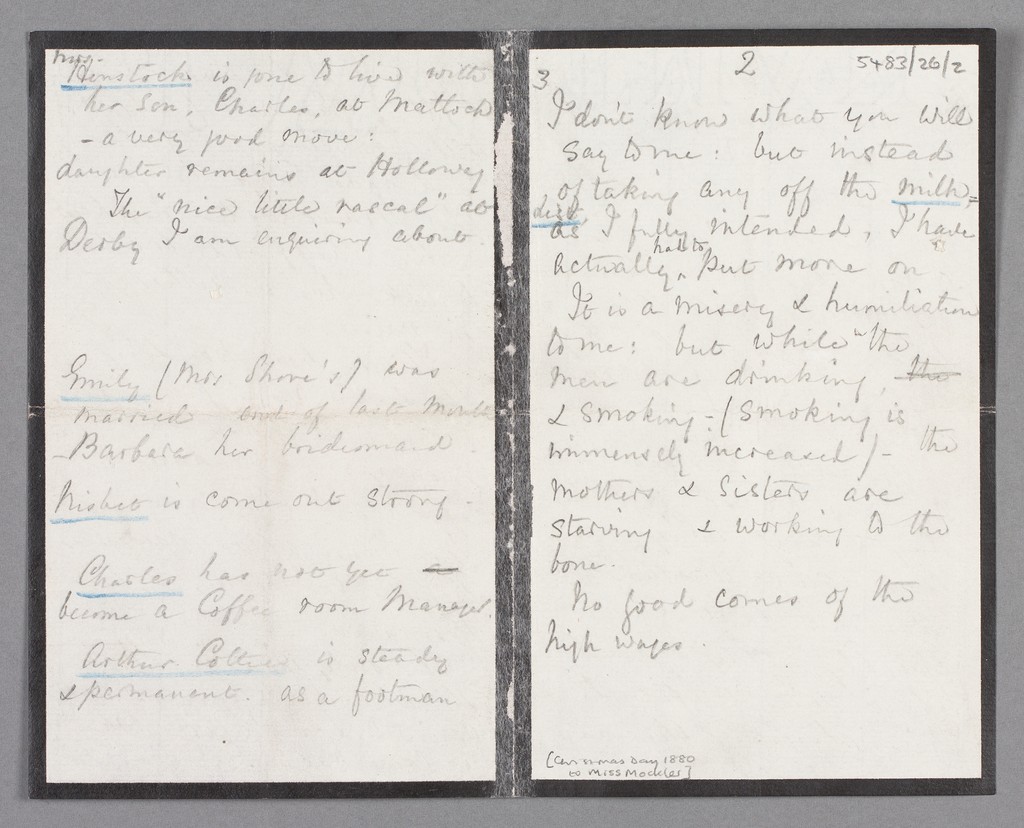 Mrs.
Henstock is gone to live with
her Son, Charles, at Matlock
- a very good move:
daughter remains at Holloway
The "nice little rascal" at
Derby I am enquiring about.
Emily (Mrs Shore's) was
married end of last month
- Barbara her bridesmaid.
Nisbet is come out strong -
Charles has not yet a
become a Coffee room Manager.
Arthur Cottee is steady
& permanent. as a footman
3
2
5483/26/2
I don't know what you will
say to me: but instead
of taking any off the milk=
list, as I fully intended, I have
actually had to put more on
It is a misery & humiliation
to me: but while "the
men are drinking, the
& smoking - (smoking is
immensely increased) - the
Mothers & Sisters are
starving & working to the
bone.
No good comes of the
high wages.
[Christmas Day 1880
to Miss Mochler]